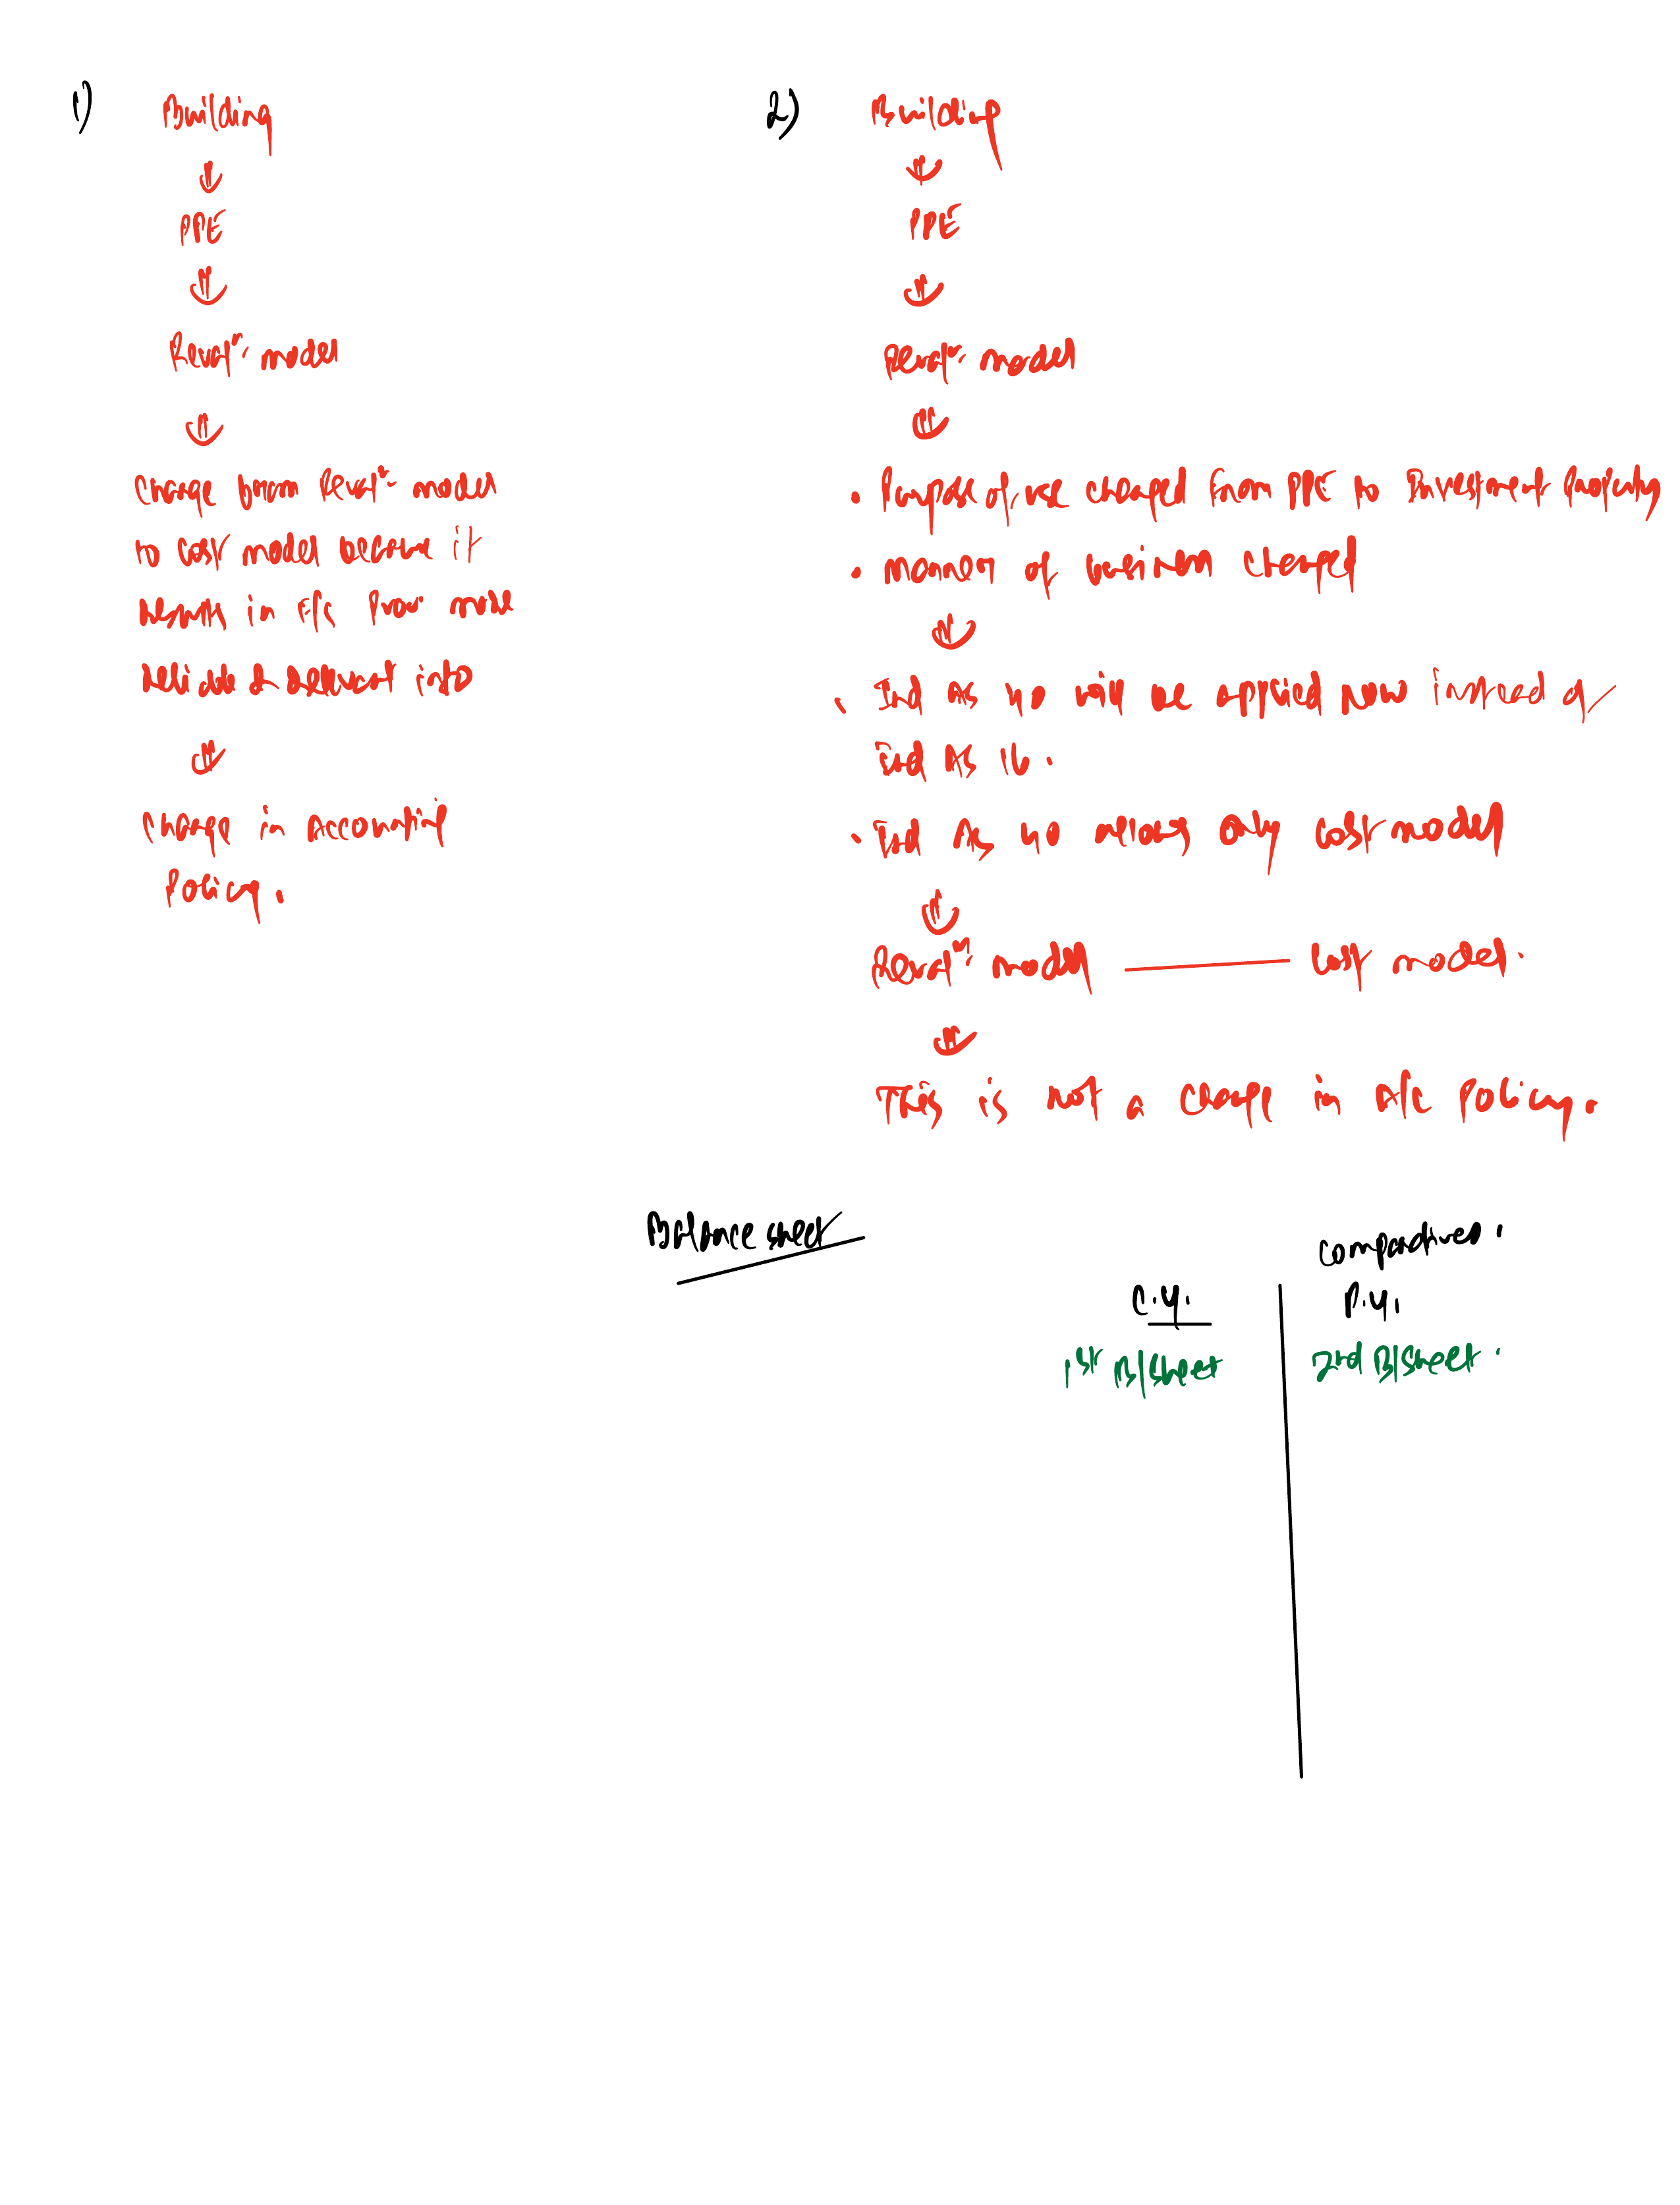 1)
Building
PPE
Revalⁿ. model
Change from Revalⁿ. model
to Cost model because it
results in F/s Prov. more
reliable & relevant info
Change in Accounting
Policy.
2)
Building
PPE
Revalⁿ. model
• Purpose of use changed from PPE to Investment Property
• manner of business changed
• Ind AS 40 will be applied now instead of
Ind AS 16.
• Ind As 40 allows only cost model
Revalⁿ. model —— Cost model.
This is not a change in A/c Policy.
Balance sheet
Comparatives.
C.Y.
P.Y.
1st B/sheet
2nd B/sheet.